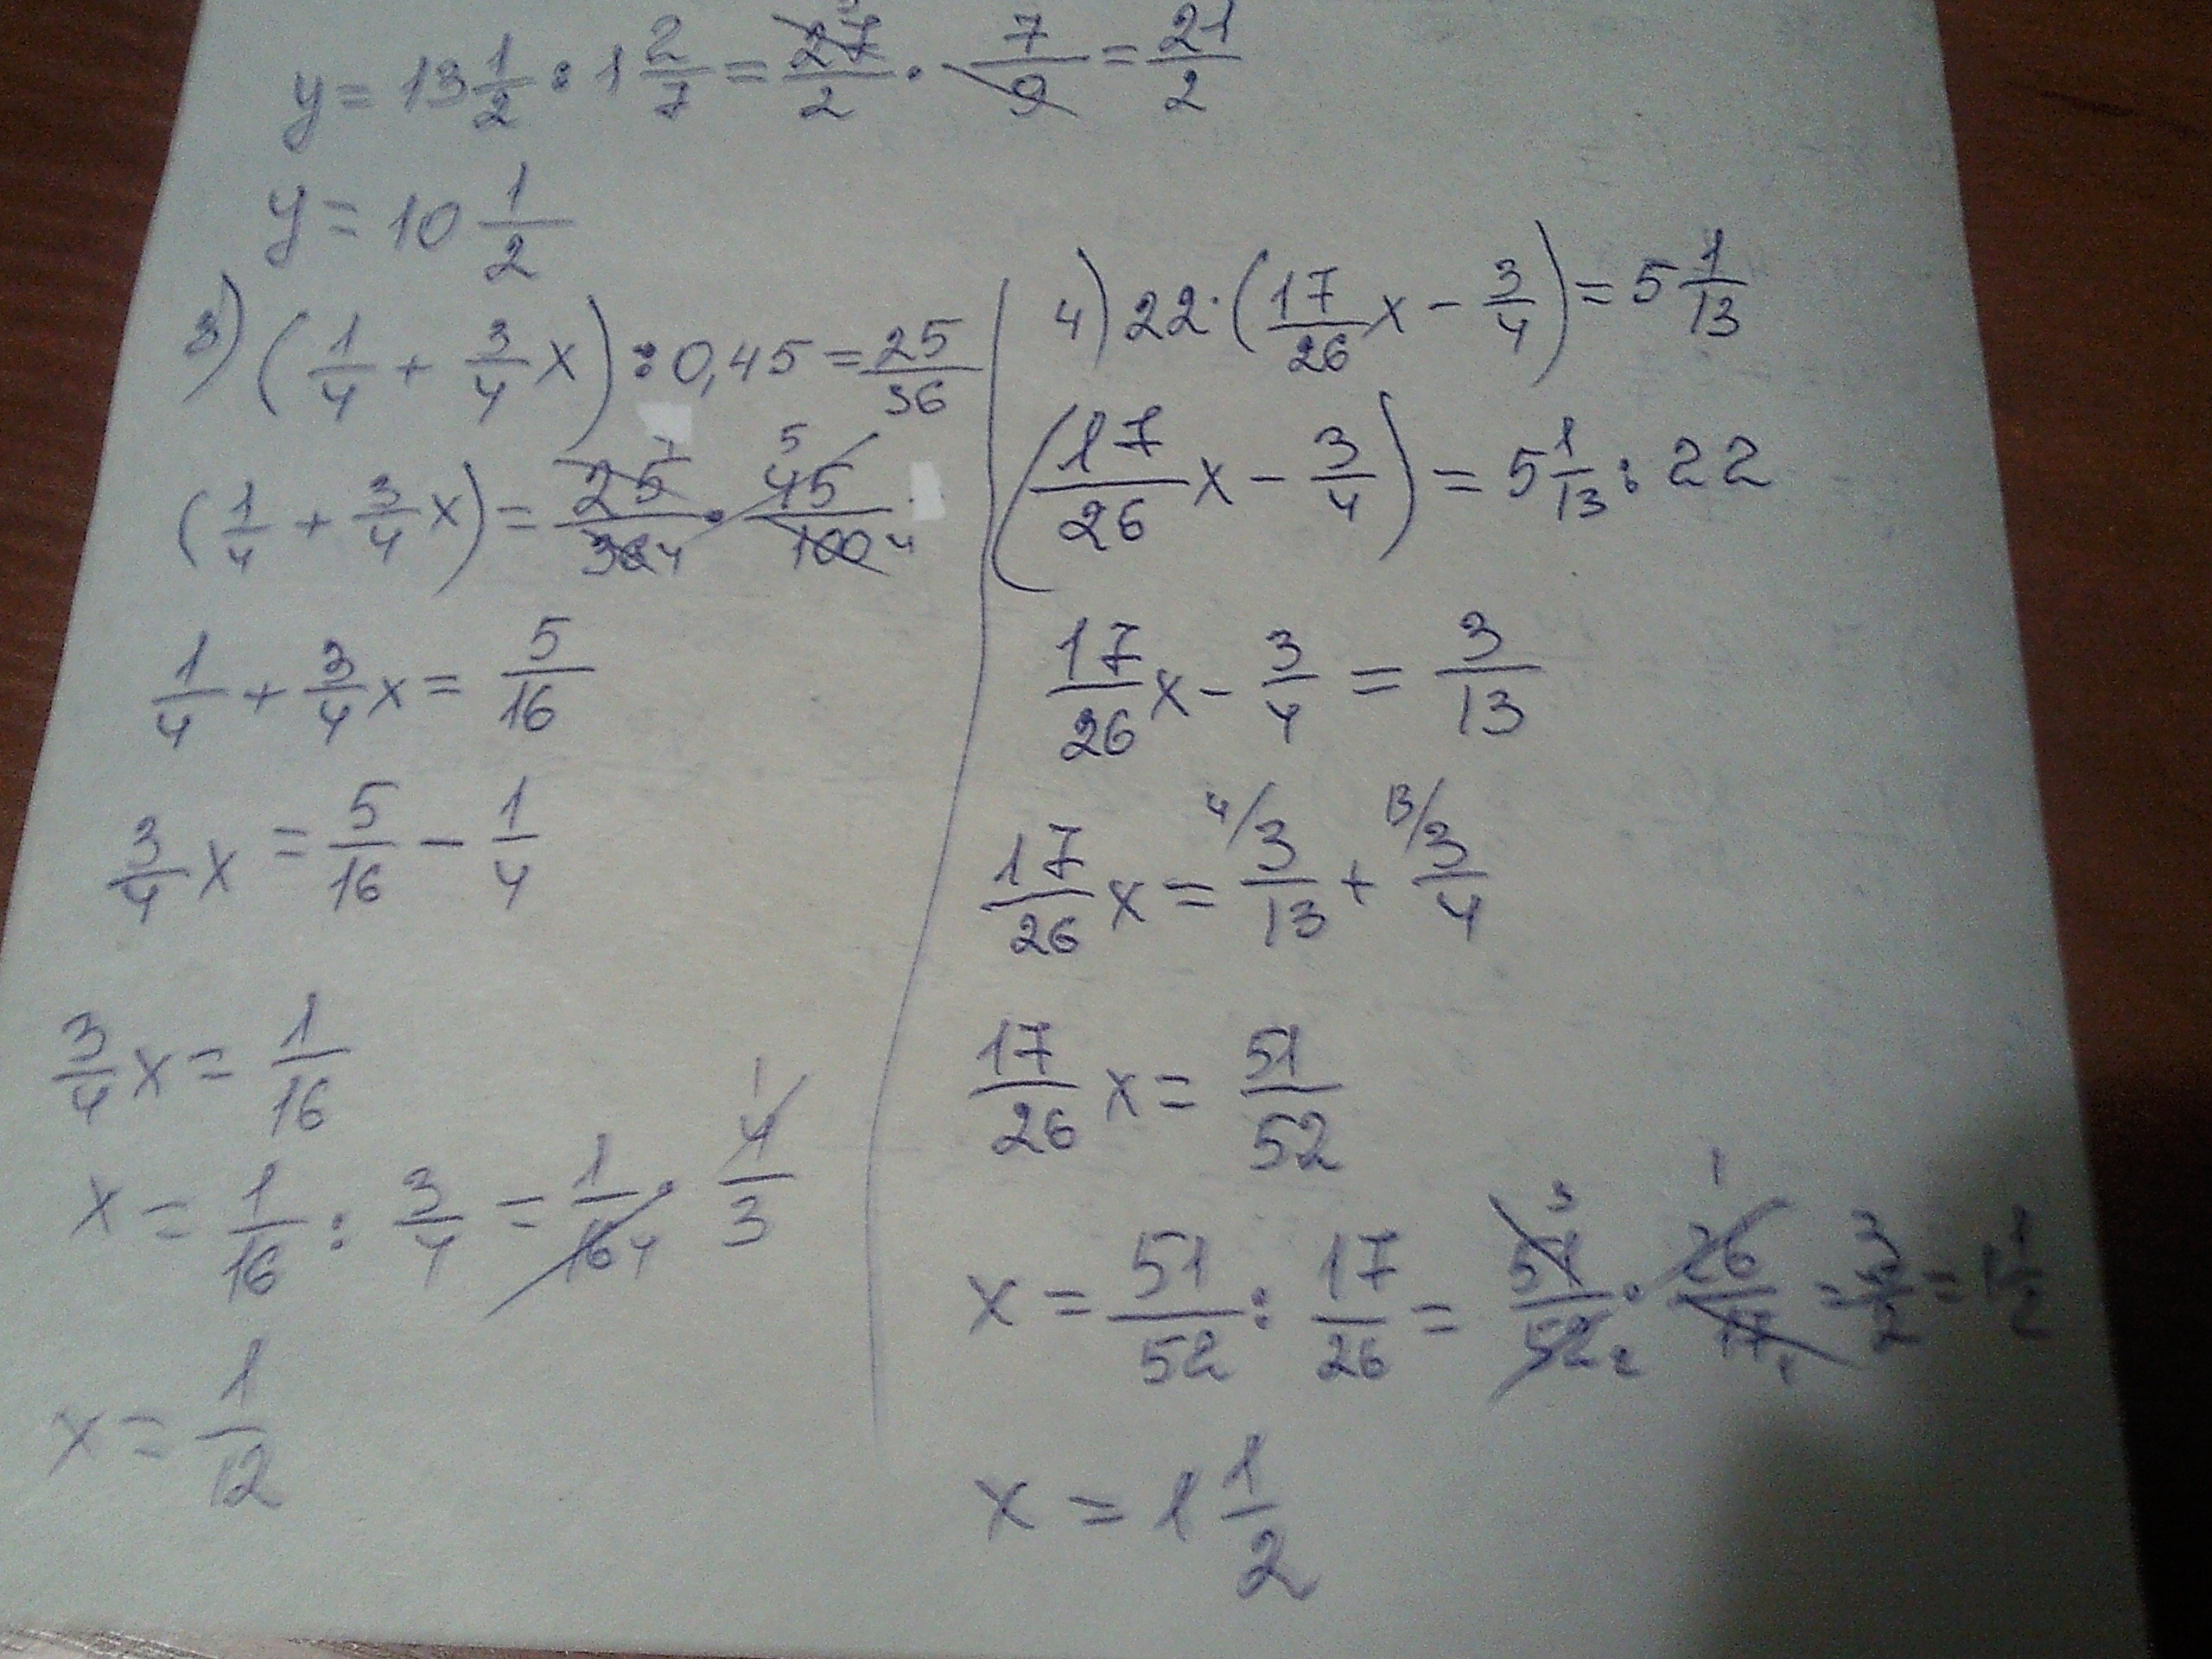 y = 13 1/2 : 1 2/7 = 27/2 · 7/9 = 21/2
y = 10 1/2
3) (1/4 + 3/4 x) : 0,45 = 25/36
(1/4 + 3/4 x) = 25/36 4 · 5 45/100 4
1/4 + 3/4 x = 5/16
3/4 x = 5/16 - 1/4
3/4 x = 1/16
x = 1/16 : 3/4 = 1/16 4 · 1 4/3
x = 1/12
4) 22 · (17/26 x - 3/4) = 5 1/13
(17/26 x - 3/4) = 5 1/13 : 22
17/26 x - 3/4 = 3/13
17/26 x = 4/ 3/13 + 13/ 3/4
17/26 x = 51/52
x = 51/52 : 17/26 = 3 51/52 2 · 1 26/17 1 = 3/2 = 1 1/2
x = 1 1/2